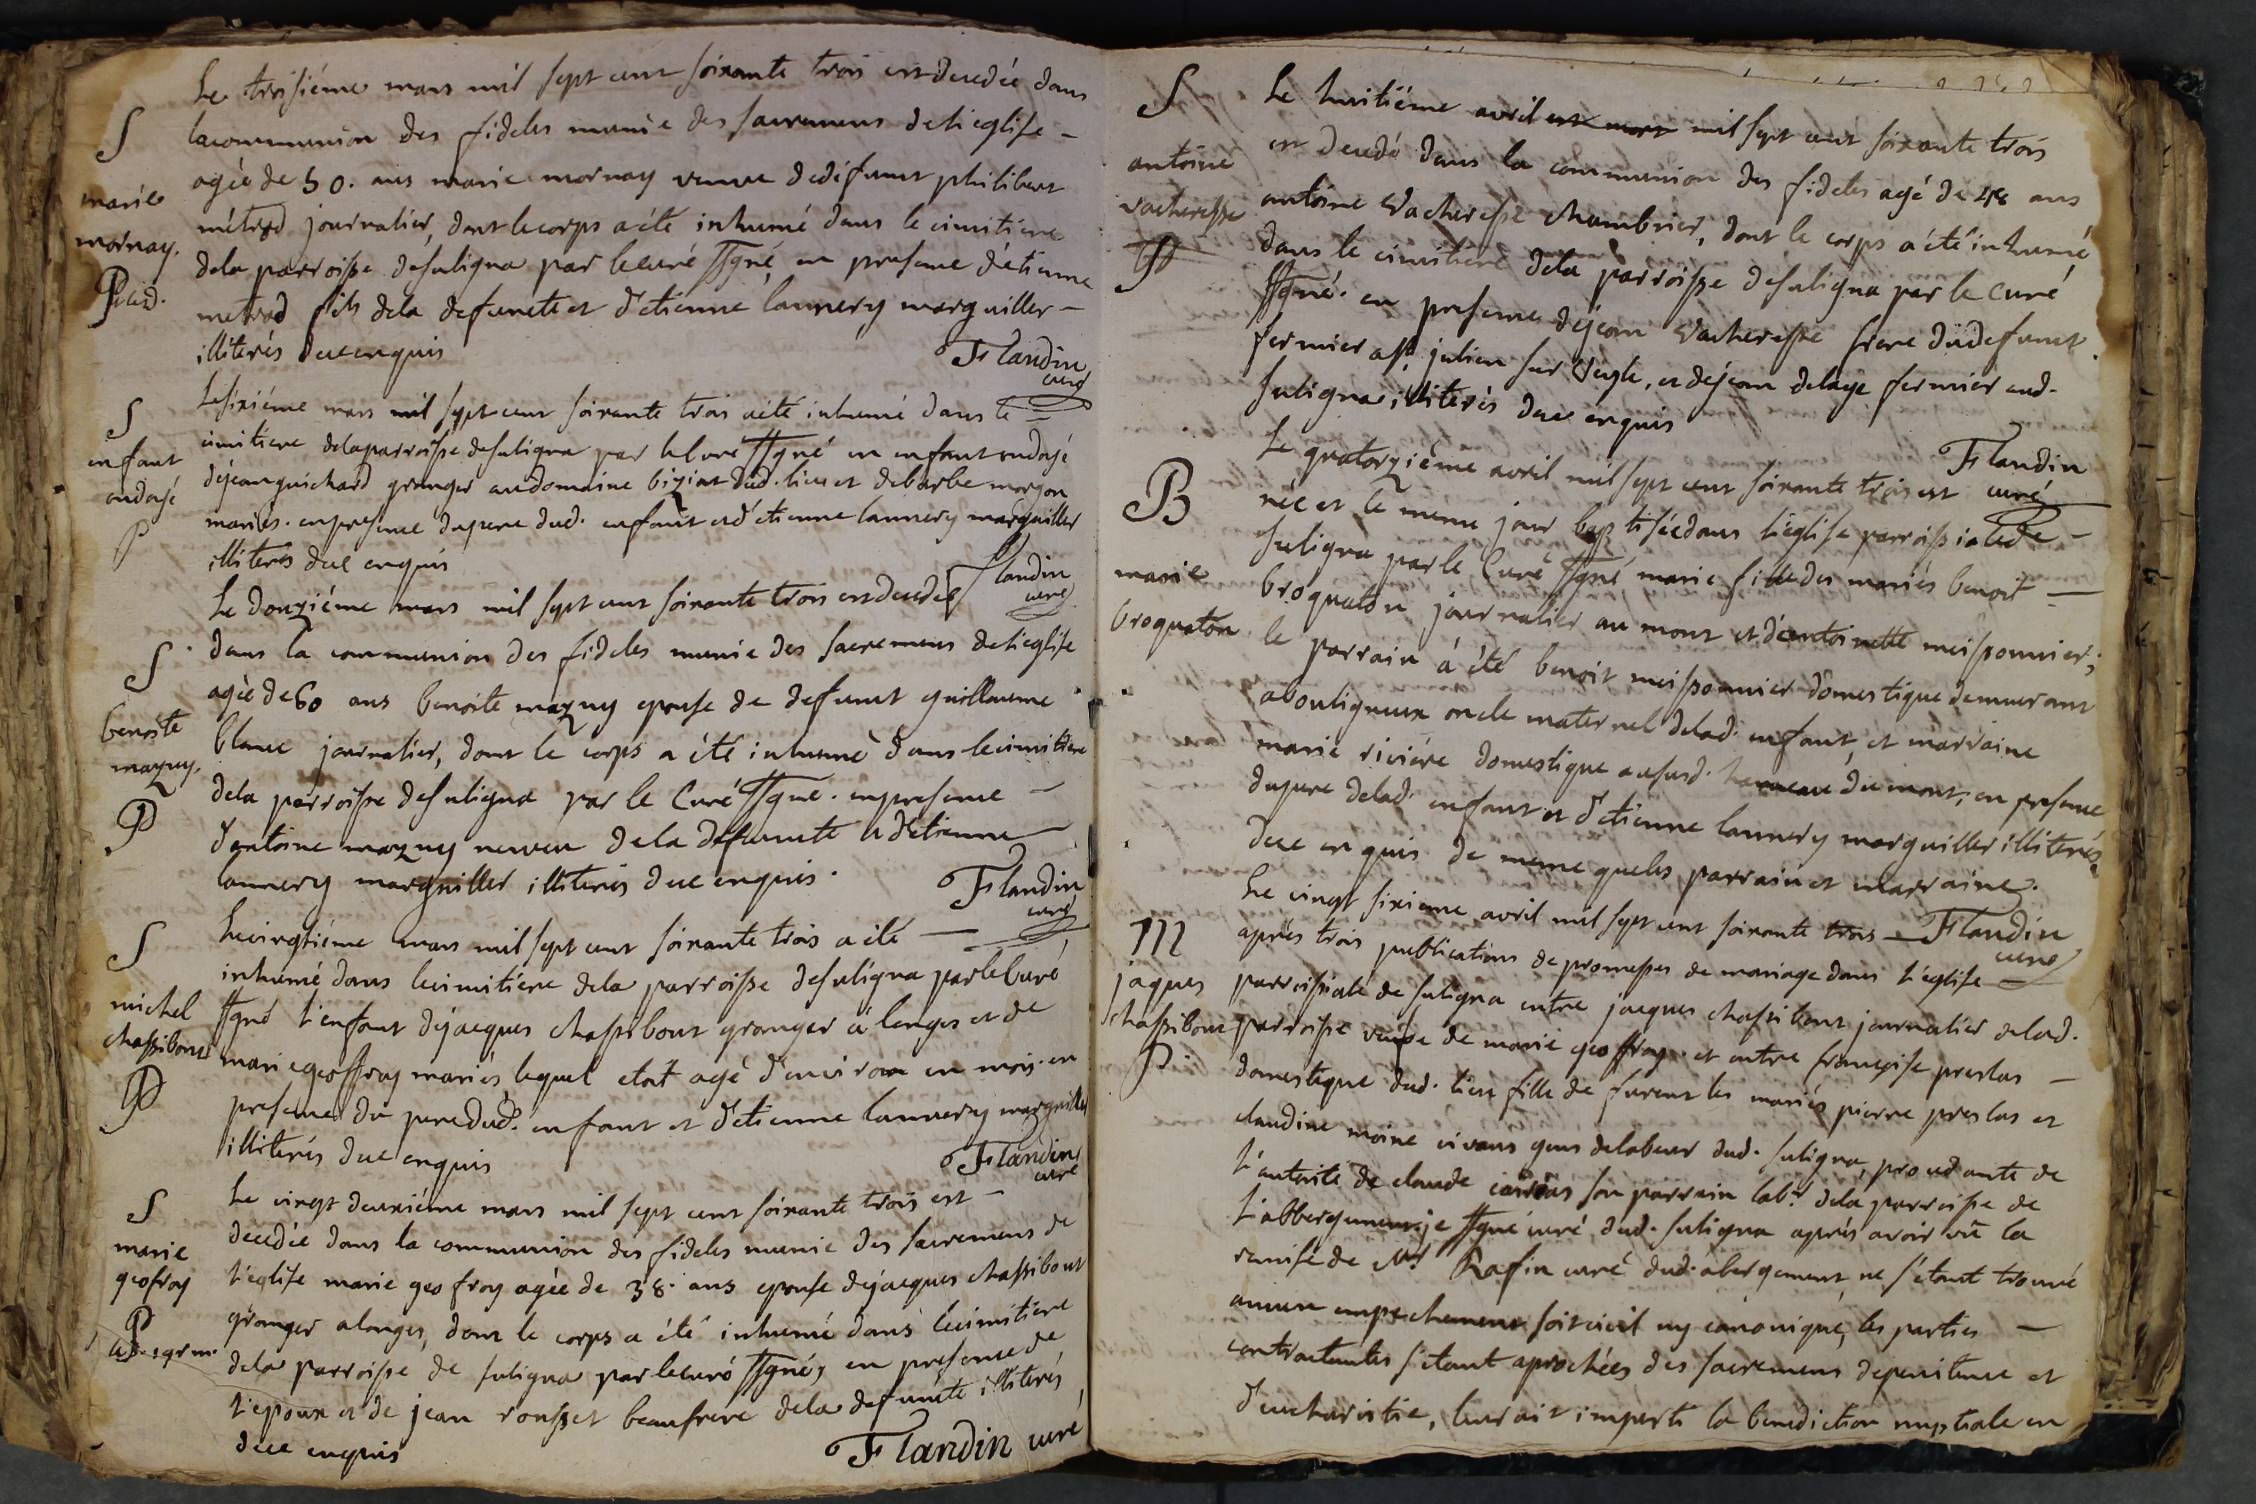 S
marie
mornay.
P
Le troisiéme mars mil sept cent soixante trois est decedée dans
la communion des fideles munie des sacremens de l'eglise –
agée de 50. ans marie mornay veuve de defunt philibert
métrad journalier, dont le corps a été inhumé dans le cimitiere
dela parroisse de suligna par le curé ssgné, en presence d'étienne
metrad fils dela defuncte et d'etienne lannery marguiller –
illiterés de ce enquis
Flandin
curé
S
enfant
ondoyé
P
Le sixiéme mars mil sept cent soixante trois a été inhumé dans le –
cimitiere dela parroisse de suligna par le Curé ssgné un enfant ondoyé
de jean guichard granger au domaine biziat dud. lieu et de barbe morgon
mariés. en presence du pere dud. enfant et d'etienne lannery marguiller
illiterés de ce enquis
Flandin
curé
S
benoite
mazuy.
P
Le douziéme mars mil sept cent soixante trois est decedée
dans la communion des fideles munie des sacremens de l'eglise
agée de 60 ans benoite mazuy epouse de defunt guillaume
blanc journalier, dont le corps a été inhumé dans le cimitiere
dela parroisse de suligna par le Curé ssgné. en presence –
d'antoine mazuy neveu dela defuncte et d'etienne –
lannery marguiller illiterés de ce enquis.
Flandin
curé
S
michel
chassibout
P
Le vingtiéme mars mil sept cent soixante trois a été –
inhumé dans le cimitiere dela parroisse de suligna par le Curé
ssgné l'enfant de jacques chassibout granger à longes et de
marie geoffroy mariés lequel etoit agé d'environ un mois. en
presence du pere dud. enfant et d'etienne lannery marguiller
illiterés de ce enquis
Flandin
curé
S
marie
geofroy
P
Le vingt deuxiéme mars mil sept cent soixante trois est –
decedée dans la communion des fideles munie des sacremens de
l'eglise marie geofroy agée de 38. ans epouse de jacques chassibout
granger a longes, dont le corps a été inhumé dans le cimitiere
dela parroisse de suligna par le curé ssgné, en presence de
l'epoux et de jean rousset beaufrere dela defuncte illiterés
de ce enquis
Flandin curé
S
antoine
vacheresse
P
Le huitiéme avril est mort mil sept cent soixante trois
est decedé dans la communion des fideles agé de 48 ans
antoine Vacheresse chambrier, dont le corps a été inhumé
dans le cimitiere dela parroisse de suligna par le Curé
ssgné. en presence de jean Vacheresse frere du defunct
fermier a st. julien sur Veyle, et de jean delaye fermier aud.
suligna illiterés de ce enquis
Flandin
curé
B
marie
broquaton
Le quatorziéme avril mil sept cent soixante trois est
née et le meme jour baptisée dans l'eglise parroissiale de –
suligna par le Curé ssgné marie fille des mariés benoit –
broquaton journalier au mont et d'antoinette meissonnier;
le parrain a été benoit meissonnier domestique demeurant
a bouligneux oncle maternel delad. enfant, et marraine
marie riviére domestique au susd. hameau du mont, en presence
du pere delad. enfant et d'etienne lannery marguiller illiterés
de ce enquis de meme que les parrain et marraine.
Flandin
curé
M
jaques
chassibout
P.
Le vingt sixieme avril mil sept cent soixante trois –
aprés trois publications de promesses de mariage dans l'eglise –
parroissiale de suligna entre jacques chassibout journalier delad.
parroisse veuf de marie geoffroy. et entre françoise preslas –
domestique dud. lieu fille de furent les mariés pierre preslas et
claudine moine vivans gens de labeur dud. suligna, procedante de
l'autorité de claude carras son parrain labr. dela parroisse de
l'abbergement, je ssgné curé dud. suligna aprés avoir vû la
remise de Mr. Rafin curé dud. abergement, ne s'étant trouvé
aucun empechement soit civil ny canonique, les parties –
contractantes s'etant aprochées des sacremens de penitence et
d'eucharistie, leur ait imparti la benediction nuptiale en